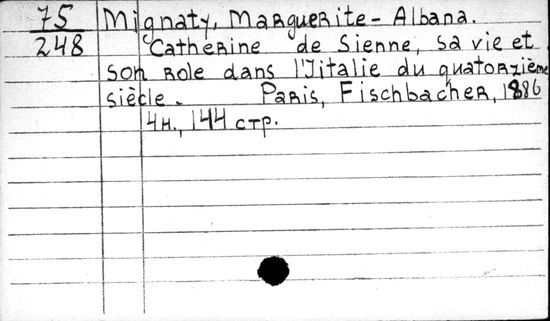 75 Mignaty, Marguerite - Albana.
248 Catherine de Sienne, sa vie et
son role dans l'Jitalie du quatorzième
siècle. Paris, Fischbacher, 1886
4н., 144 стр.